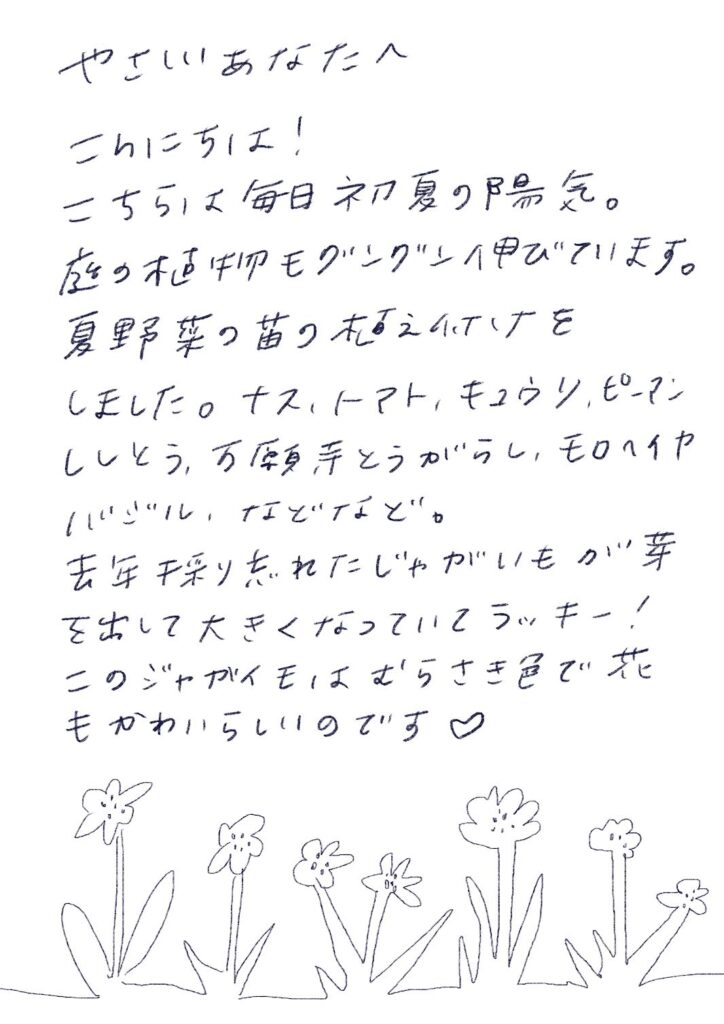 やさしいあなたへ
こんにちは！
こちらは毎日初夏の陽気。
庭の植物もグングン伸びています。
夏野菜の苗の植え付けを
しました。ナス、トマト、キュウリ、ピーマン
ししとう、万願寺とうがらし、モロヘイヤ
バジル、などなど。
去年採り忘れたじゃがいもが芽
を出して大きくなっていてラッキー！
このジャガイモはむらさき色で花
もかわいらしいのです♡